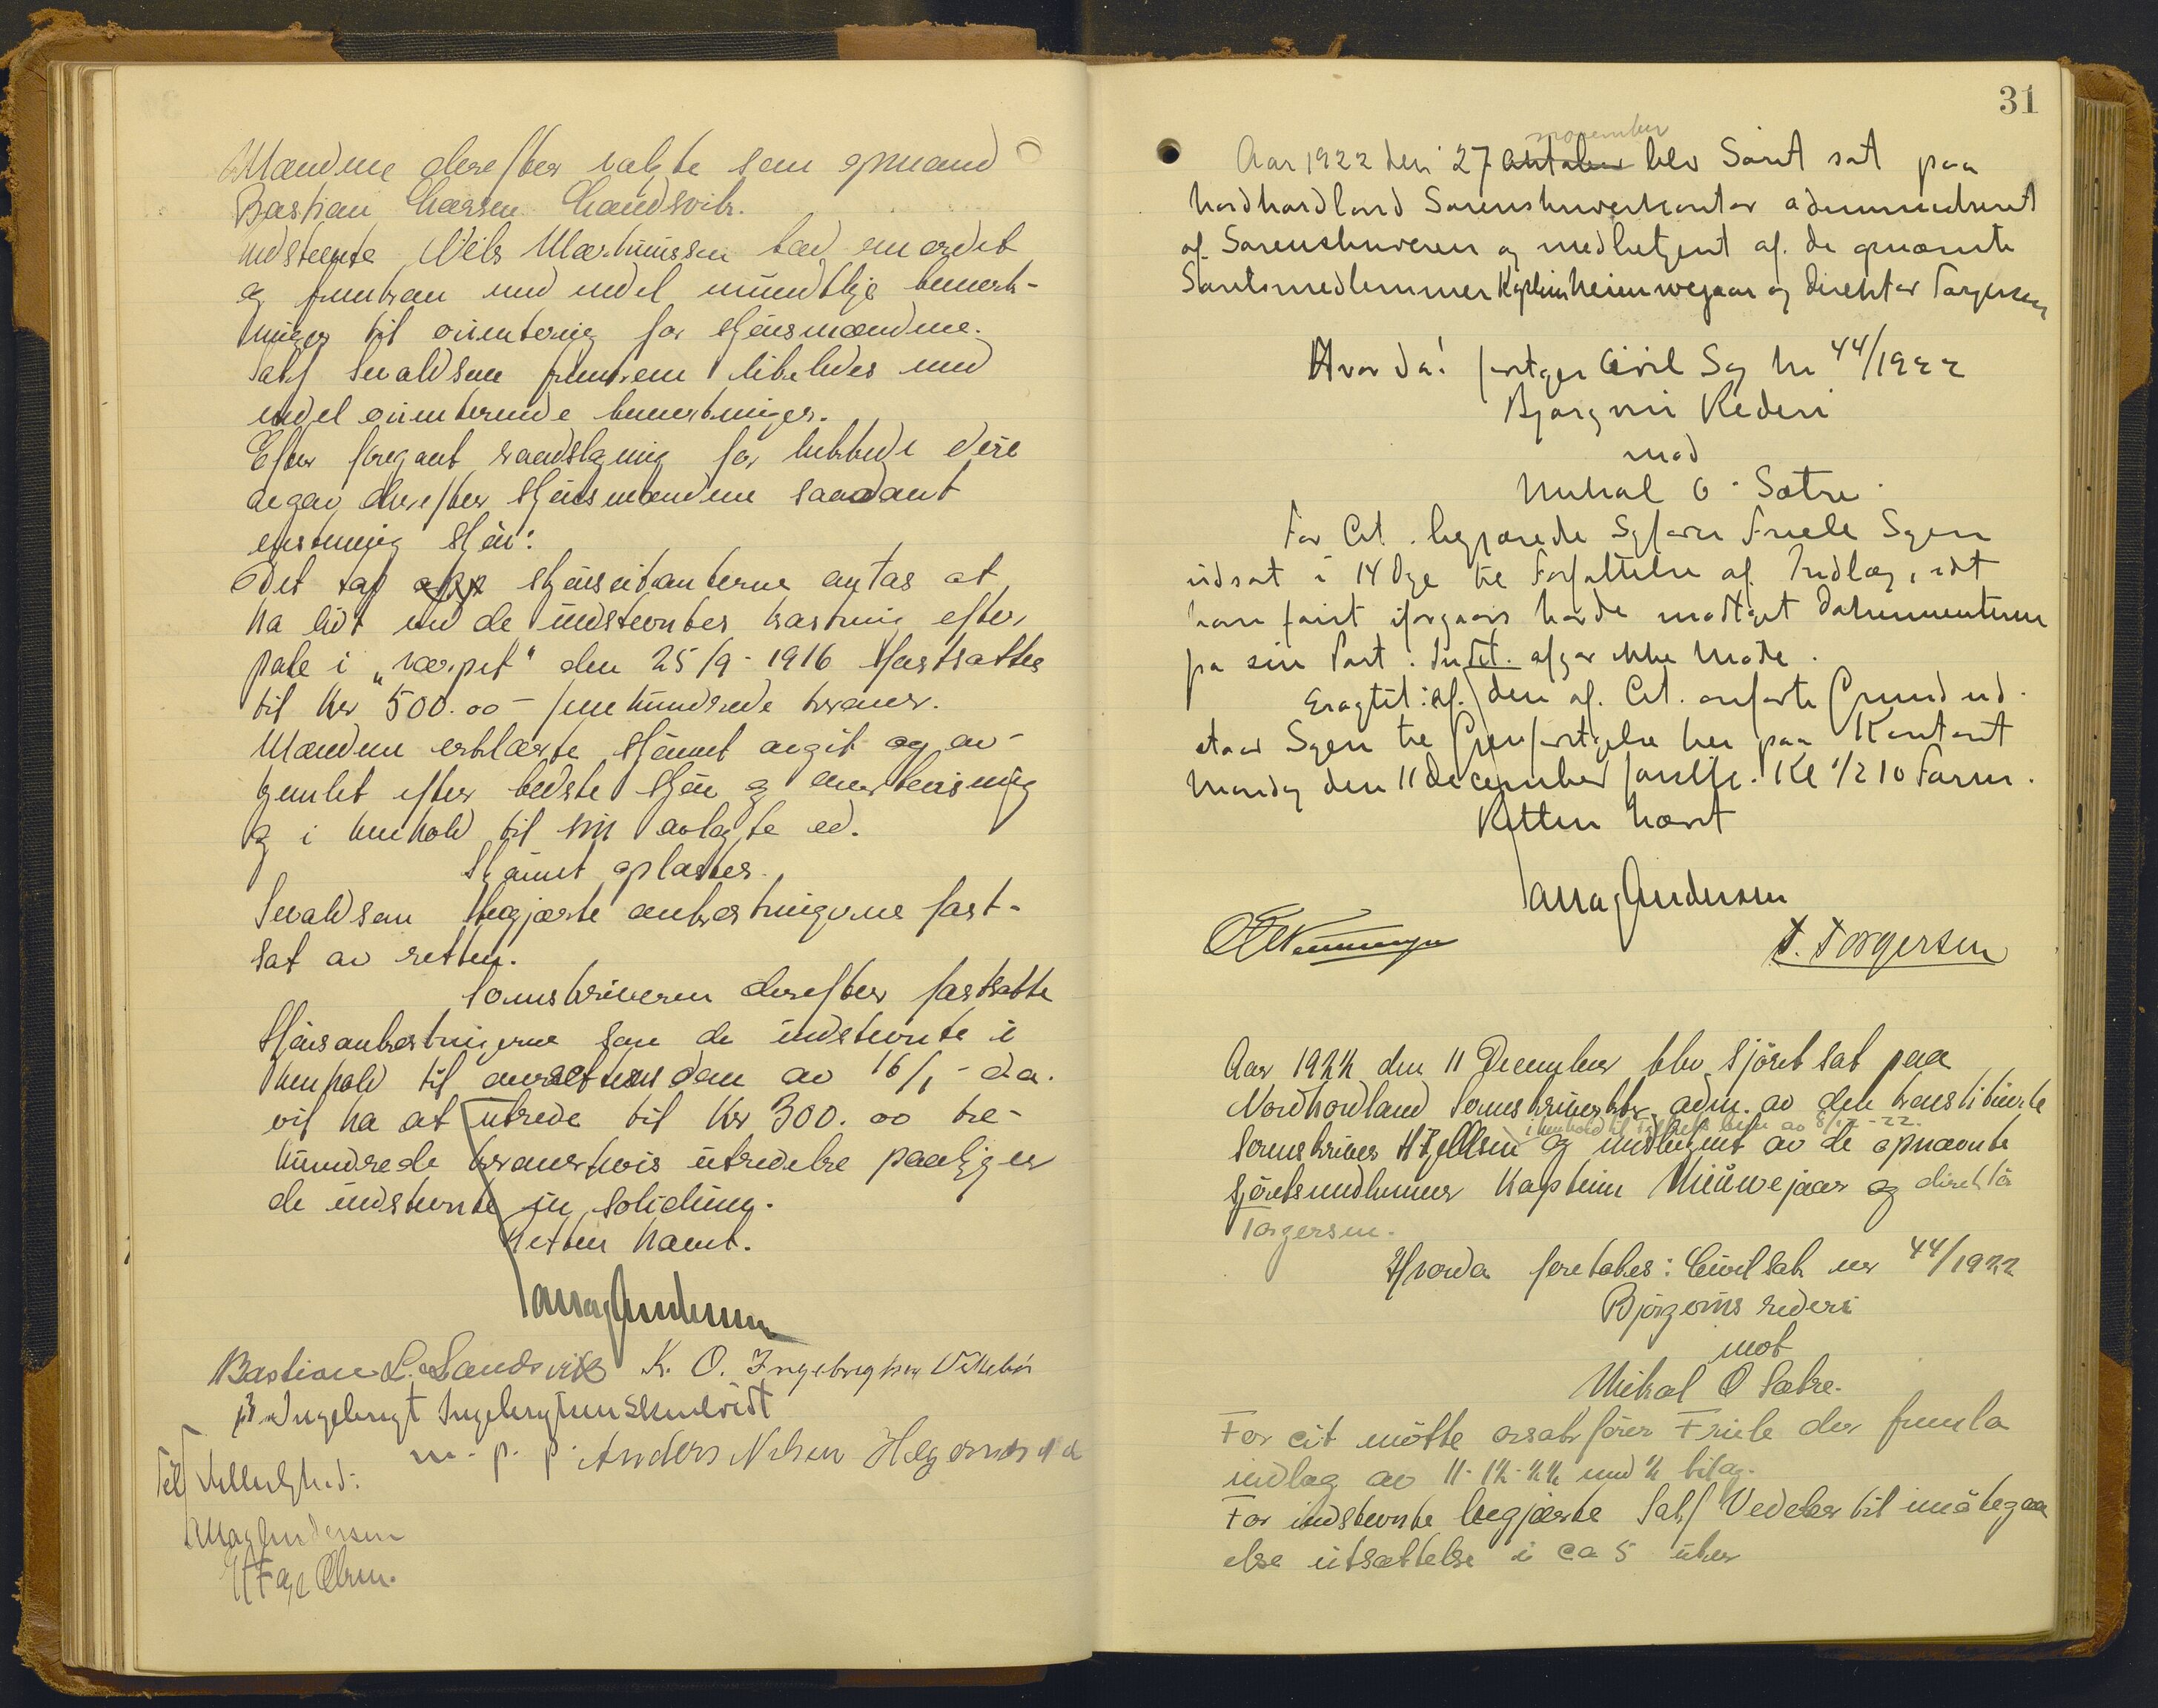 Mændene derefter valgte som opmand
Bastian Larsen Landsvik.
Indstevnte Nils Martinussen bad om ordet
og fremkom med endel mundtlige bemerk-
ninger til orientering for skjønsmændene.
Sakf Sevaldsen fremkom likeledes med
endel orienterende bemerkninger.
Efter foregaat raadslagning for lukkede døre
avgav derefter skjønsmændene saadant
enstemmig skjøn:
Det tap skjønscitanterne antas at
ha lidt ved de indstevntes kastning efter
pale i "værpet" den 25/9-1916 fastsættes
til Kr 500.00 - fem hundrede kroner.
Mændene erklærte skjønnet avgit og av-
hjemlet efter bedste skjøn og overbevisning
og i henhold til sin avlagte ed.
Skjønnet oplæstes.
Sevaldsen begjærte omkostningerne fast-
sat av retten.
Sorenskriveren derefter fastsatte
skjønsomkostningerne som de indstevnte i
henhold til overettens dom av 16/1 - d.a.
vil ha at utrede til Kr 300.00 tre-
hundrede kroner hvis utredelse paaligger
de indstevnte in solidum.
Retten hævet.
Aaragh Andersen
Bastian L. Landsvik K. O. Ingebrigtsen
Ingebrigt Ingebrigtsen
m. p. p. Anders Nilsen
Til Vitterlighed:
Andersen
Olsen.
31
november
Aar 1922 den 27 oktober blev Søret sat paa
Nordhordland Sorenskriverkontor administreret
af Sorenskriveren og medbetjent af de opnævnte
Søretsmedlemmer Kaptein Nieuwejaar og Direktør Torgersen
Hvor da! foretges Civil Sag No 44/1922
Bjørgvin Rederi
mod
Mikal O. Sætre.
For Cit. begjærede Sgfører Friele Sagen
udsat i 14 Dge til Forfattelse af Indlæg, idt
han først iforgaars havde modtaget Dokumenterne
fra sin Part. Indst. afgav ikke Møde.
Eragtet: Af den af Cit. anførte Grund ud-
staar Sagen til Gjenforetagelse her paa Kontoret
Mandag den 11 December førstk. Kl 1/2 10 Form.
Retten hævet
Andersen
T. Torgersen
Aar 1922 den 11 December blev Sjøret sat paa
Nordhordland Sorenskriverktr. adm. av den konstituerte
i henhold til Fylkets brev av 8/12-22.
Sorenskriver og medbetjent av de opnævnte
Sjøretsmedlemmer Kaptein Nieuwejaar og direktør
Torgersen.
Hvorda foretokes: Civilsak nr 44/1922
Bjørgvins rederi
mot
Mikal O Sætre.
For cit møtte orsakfører Friele der fremla
indlæg av 11-12-22 med 2 bilag.
For indstevnte begjærte Sakf Vedeler til imøtegaa
else utsættelse i ca 5 uker